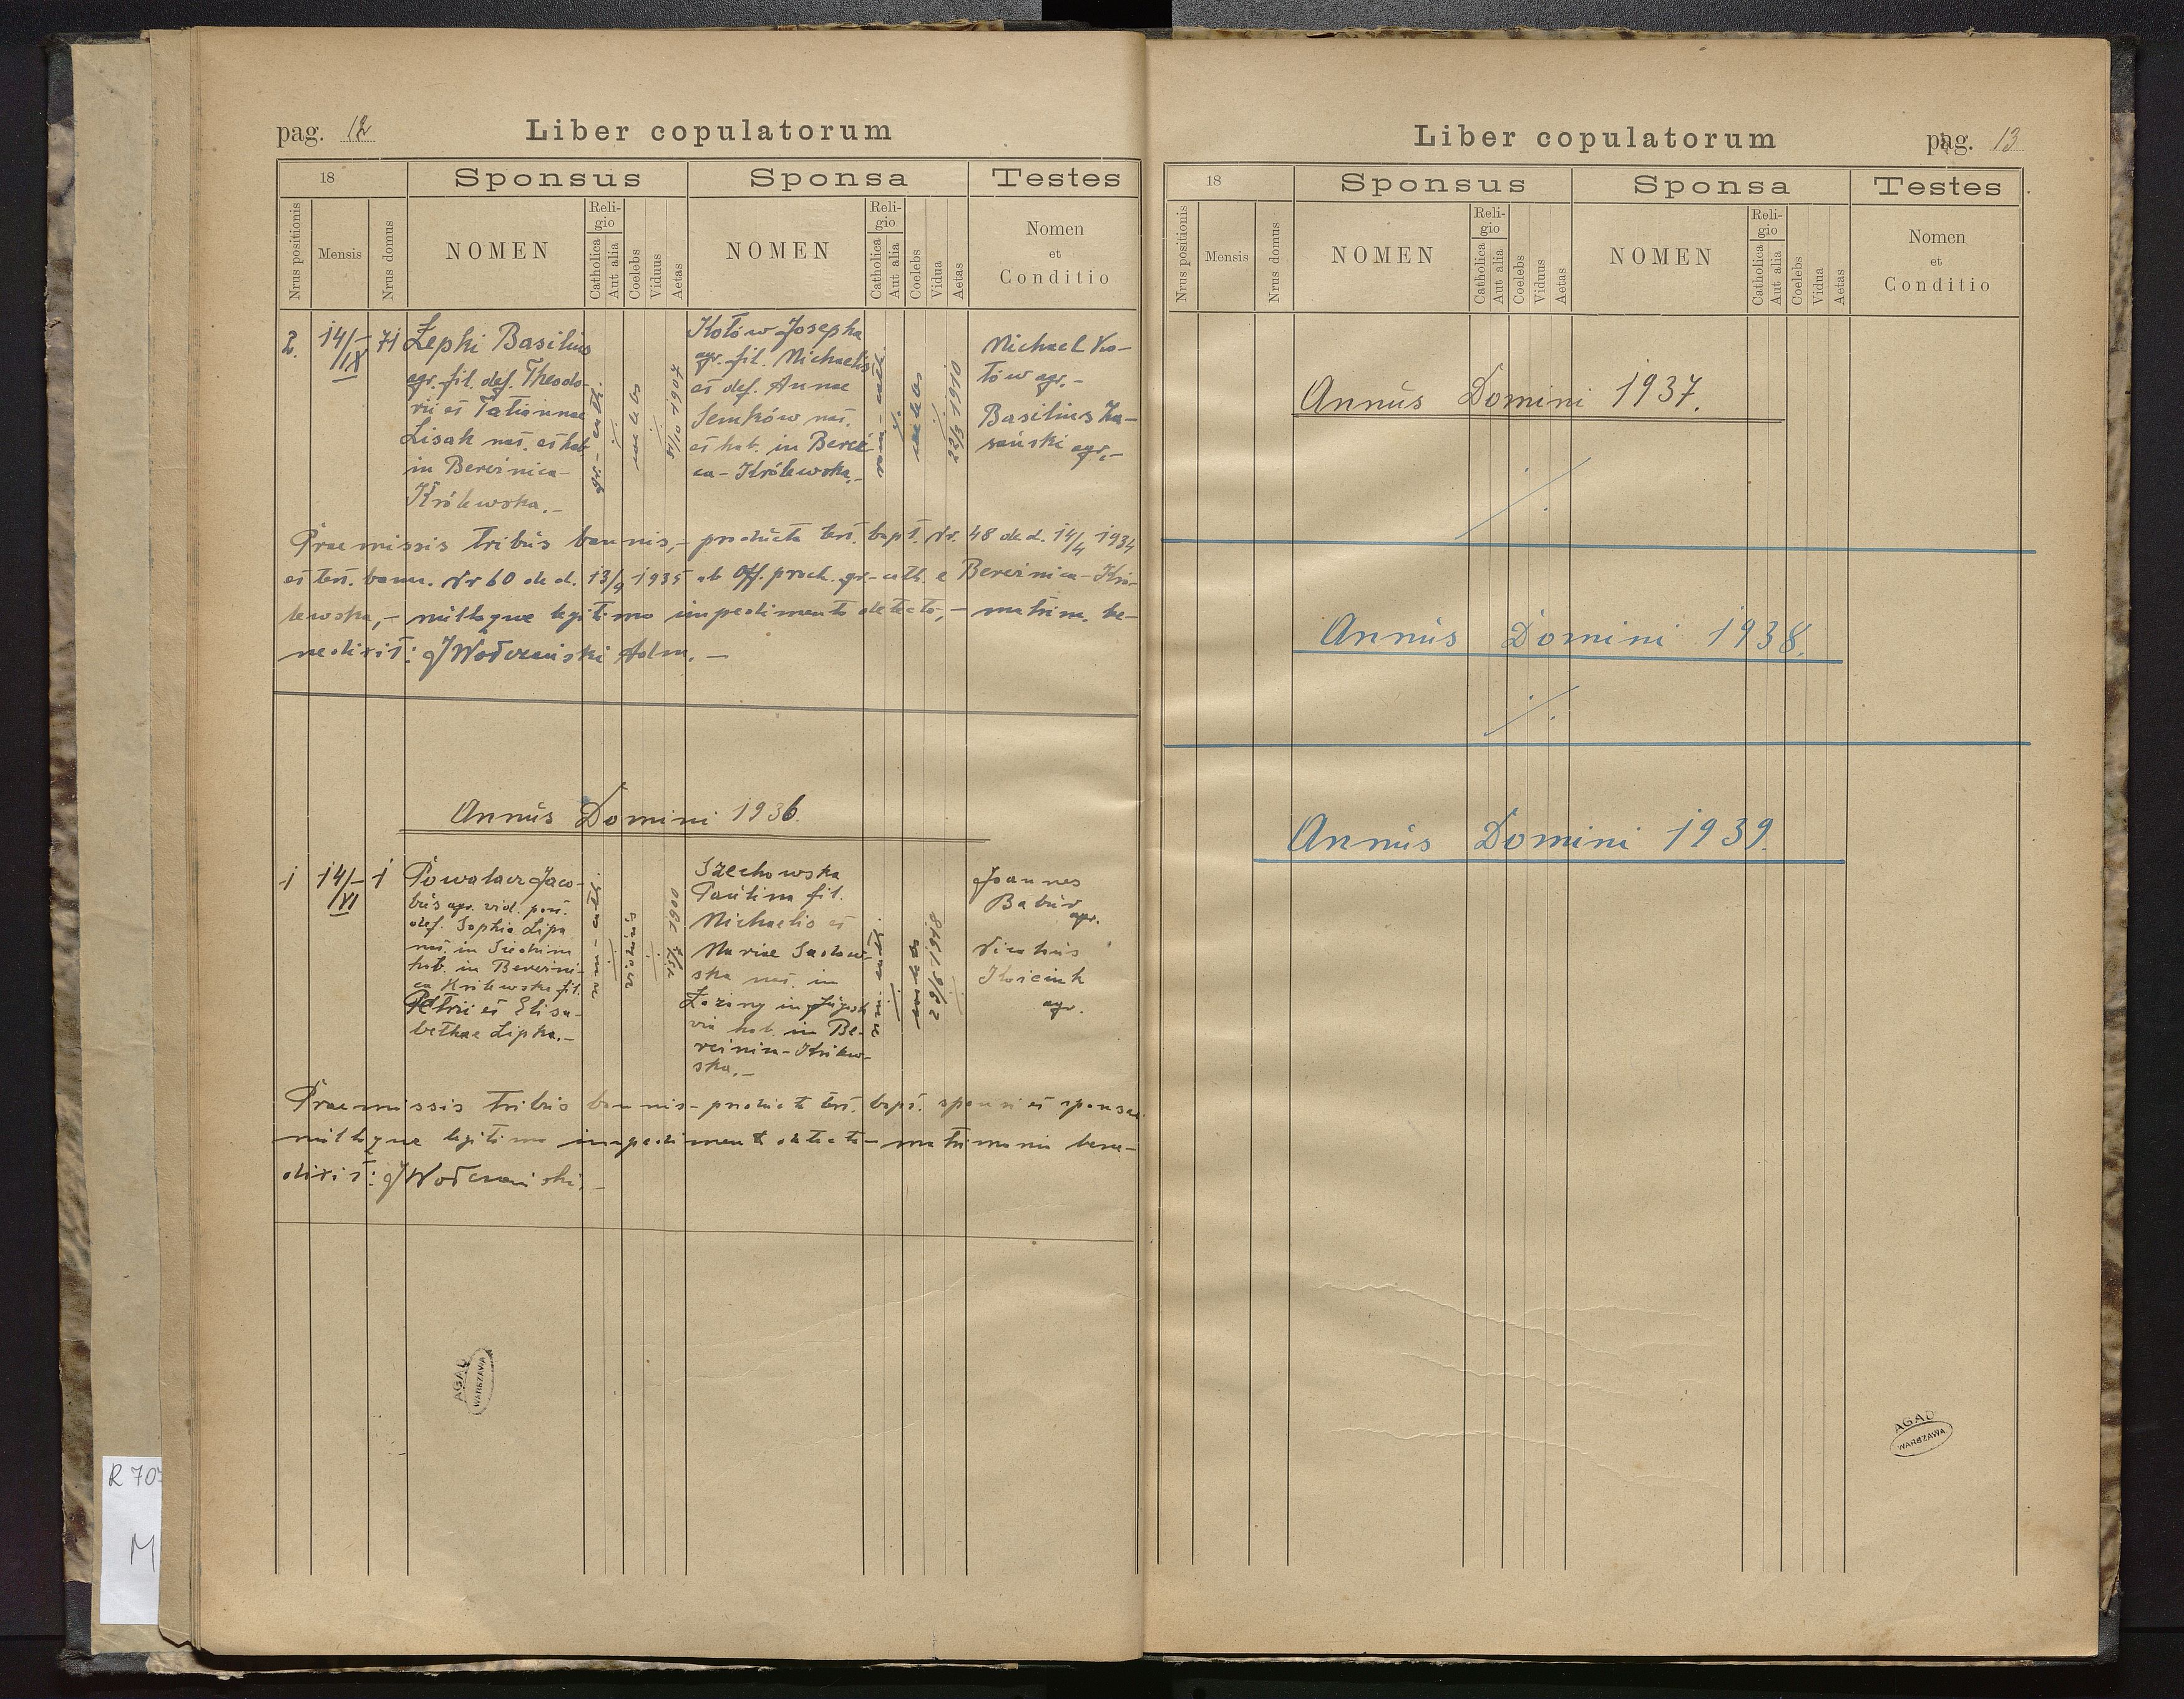 pag. 12
Liber copulatorum
18
Sponsus
Sponsa
Testes
Nrus positionis
Mensis
Nrus domus
NOMEN
Religio
Catholica
Aut alia
Coelebs
Viduus
Aetas
NOMEN
Religio
Catholica
Aut alia
Coelebs
Vidua
Aetas
Nomen
et
Conditio
2.
14/IX
71
Łepki Basilius
agr. fil. def. Theodo-
rii et Tatiannae
Lisak nat. et hab.
in Bereżnica-
Królewska.-
gr.-cath.
coelebs
5/10 1907
Kotów Josepha
agr. fil. Michaelis
et def. Annae
Semków nat.
et hab. in Bereżni-
ca-Królewska.-
rom-cath.
coelebs
22/3 1910
Michael Ko-
tów agr.-
Basilius
agr.-
Praemissis tribus bannis,- producta test. bapt. Nr. 48 de d. 14/4 1934
et test. bann. Nr 60 de d. 13/9 1935 ab Off. paroch. gr-cath. e Bereżnica-Kró-
lewska,- nulloque legitimo impedimento detecto,- matrim. be-
nedixit: J Wołczański Adm.-
Annus Domini 1936.
1
14/VI
1
Powalacz Jaco-
bus agr. vid. post.
def. Sophia Lipa
nat. in
hab. in Bereżni-
ca Królewska fil.
Petrii et Elisa-
bethae Lipka.-
rom-cath.
viduus
15/7 1900
Szechowska
Paulina fil.
Michaelis et
Mariae Sadow-
ska nat. in
in Jugosla-
via hab. in Be-
reżnica-Królew-
ska.-
rom-cath.
2/8 1918
Joannes
Babür
agr.
agr.
Praemissis tribus bannis- producto test. bapt. sponsi et sponsae
nulloque legitimo impedimento detecto- matrimonii bene-
dixit: J Wołczański.-
AGAD
WARSZAWA
R 70
M
Liber copulatorum
pag. 13
18
Sponsus
Sponsa
Testes
Nrus positionis
Mensis
Nrus domus
NOMEN
Religio
Catholica
Aut alia
Coelebs
Viduus
Aetas
NOMEN
Religio
Catholica
Aut alia
Coelebs
Vidua
Aetas
Nomen
et
Conditio
Annus Domini 1937.
Annus Domini 1938.
Annus Domini 1939.
AGAD
WARSZAWA